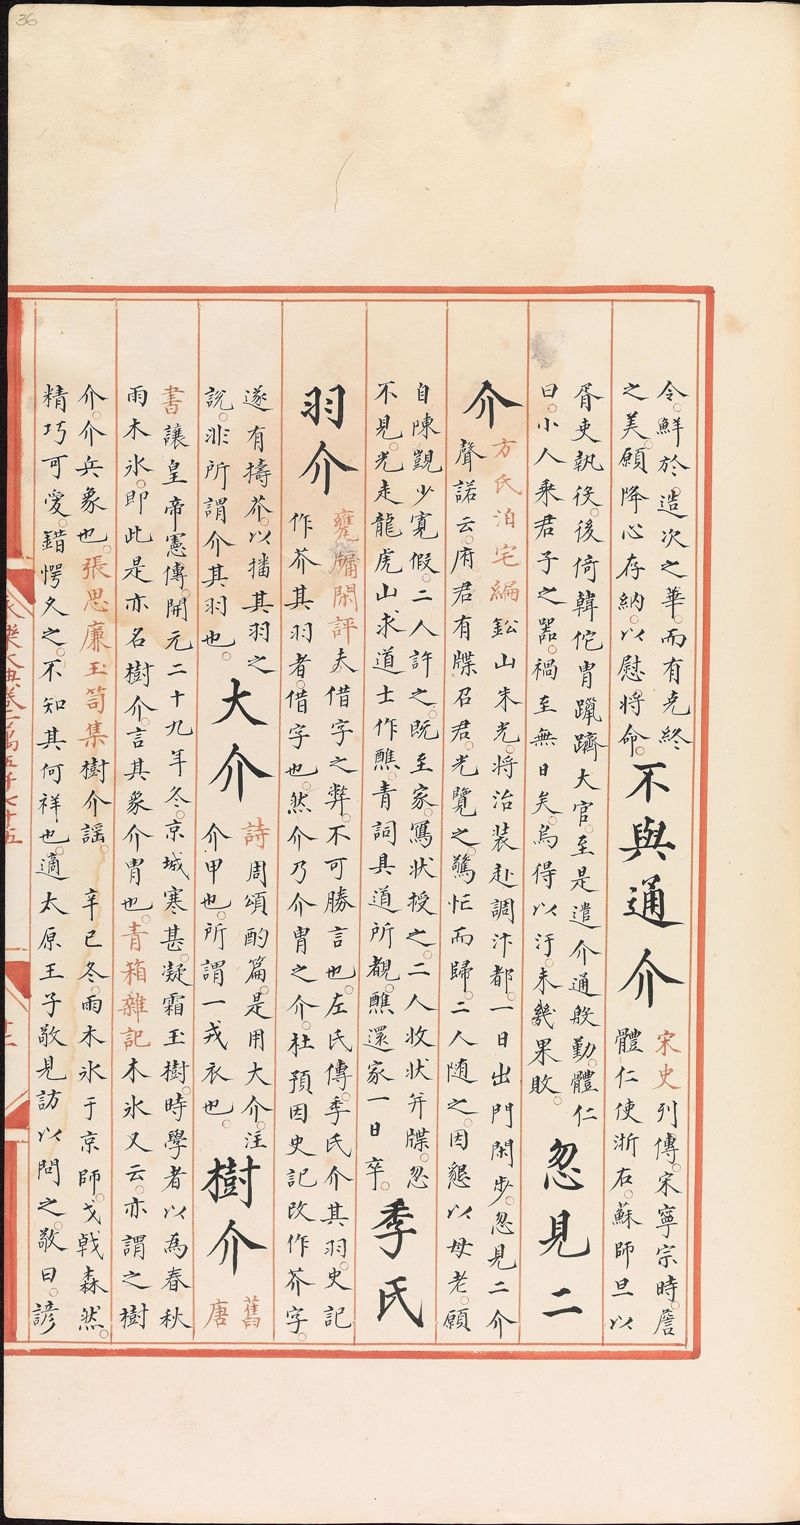 令。鮮於。造次之華。而有克終
之美。願降心存納。以慰將命。
不與通介
宋史列傳。宋寧宗時。詹
體仁使浙右。蘇師旦以
胥吏執役。後倚韓侂胄躐躋大官。至是遣介通殷勤。體仁
曰。小人乘君子之器。禍至無日矣。烏得以汙。未幾果敗。
忽見二
介
方氏泊宅編鉛山朱光。將治装赴調汴都。一日出門閑步。忽見二介
聲諾云。府君有牒召君。光覽之驚怖而歸。二人随之。因懇以母老。願
自陳覬少寬假。二人許之。既至家。寫状授之。二人收状并牒。忽
不見。光走龍虎山求道士作醮。青詞具道所覩。醮還家一日卒。
季氏
羽介
甕牖閑評夫借字之弊。不可勝言也。左氏傳。季氏介其羽。史記
作芥其羽者。借字也。然介乃介胄之介。杜預因史記改作芥字。
遂有擣芥。以播其羽之
說。非所謂介其羽也。
大介
詩周頌酌篇。是用大介。注
介甲也。所謂一戎衣也。
樹介
舊
唐
書讓皇帝憲傳。開元二十九年冬。京城寒甚。凝霜玉樹。時學者以為春秋
雨木冰。即此是亦名樹介。言其象介胄也。青箱雜記木冰又云。亦謂之樹
介。介兵象也。張思廉玉笥集樹介謠。 辛巳冬。雨木冰于京師。戈戟森然。
精巧可愛。錯愕久之。不知其何祥也。適太原王子敬見訪以問之。敬曰。諺
永樂大典卷二萬五千七十五
36